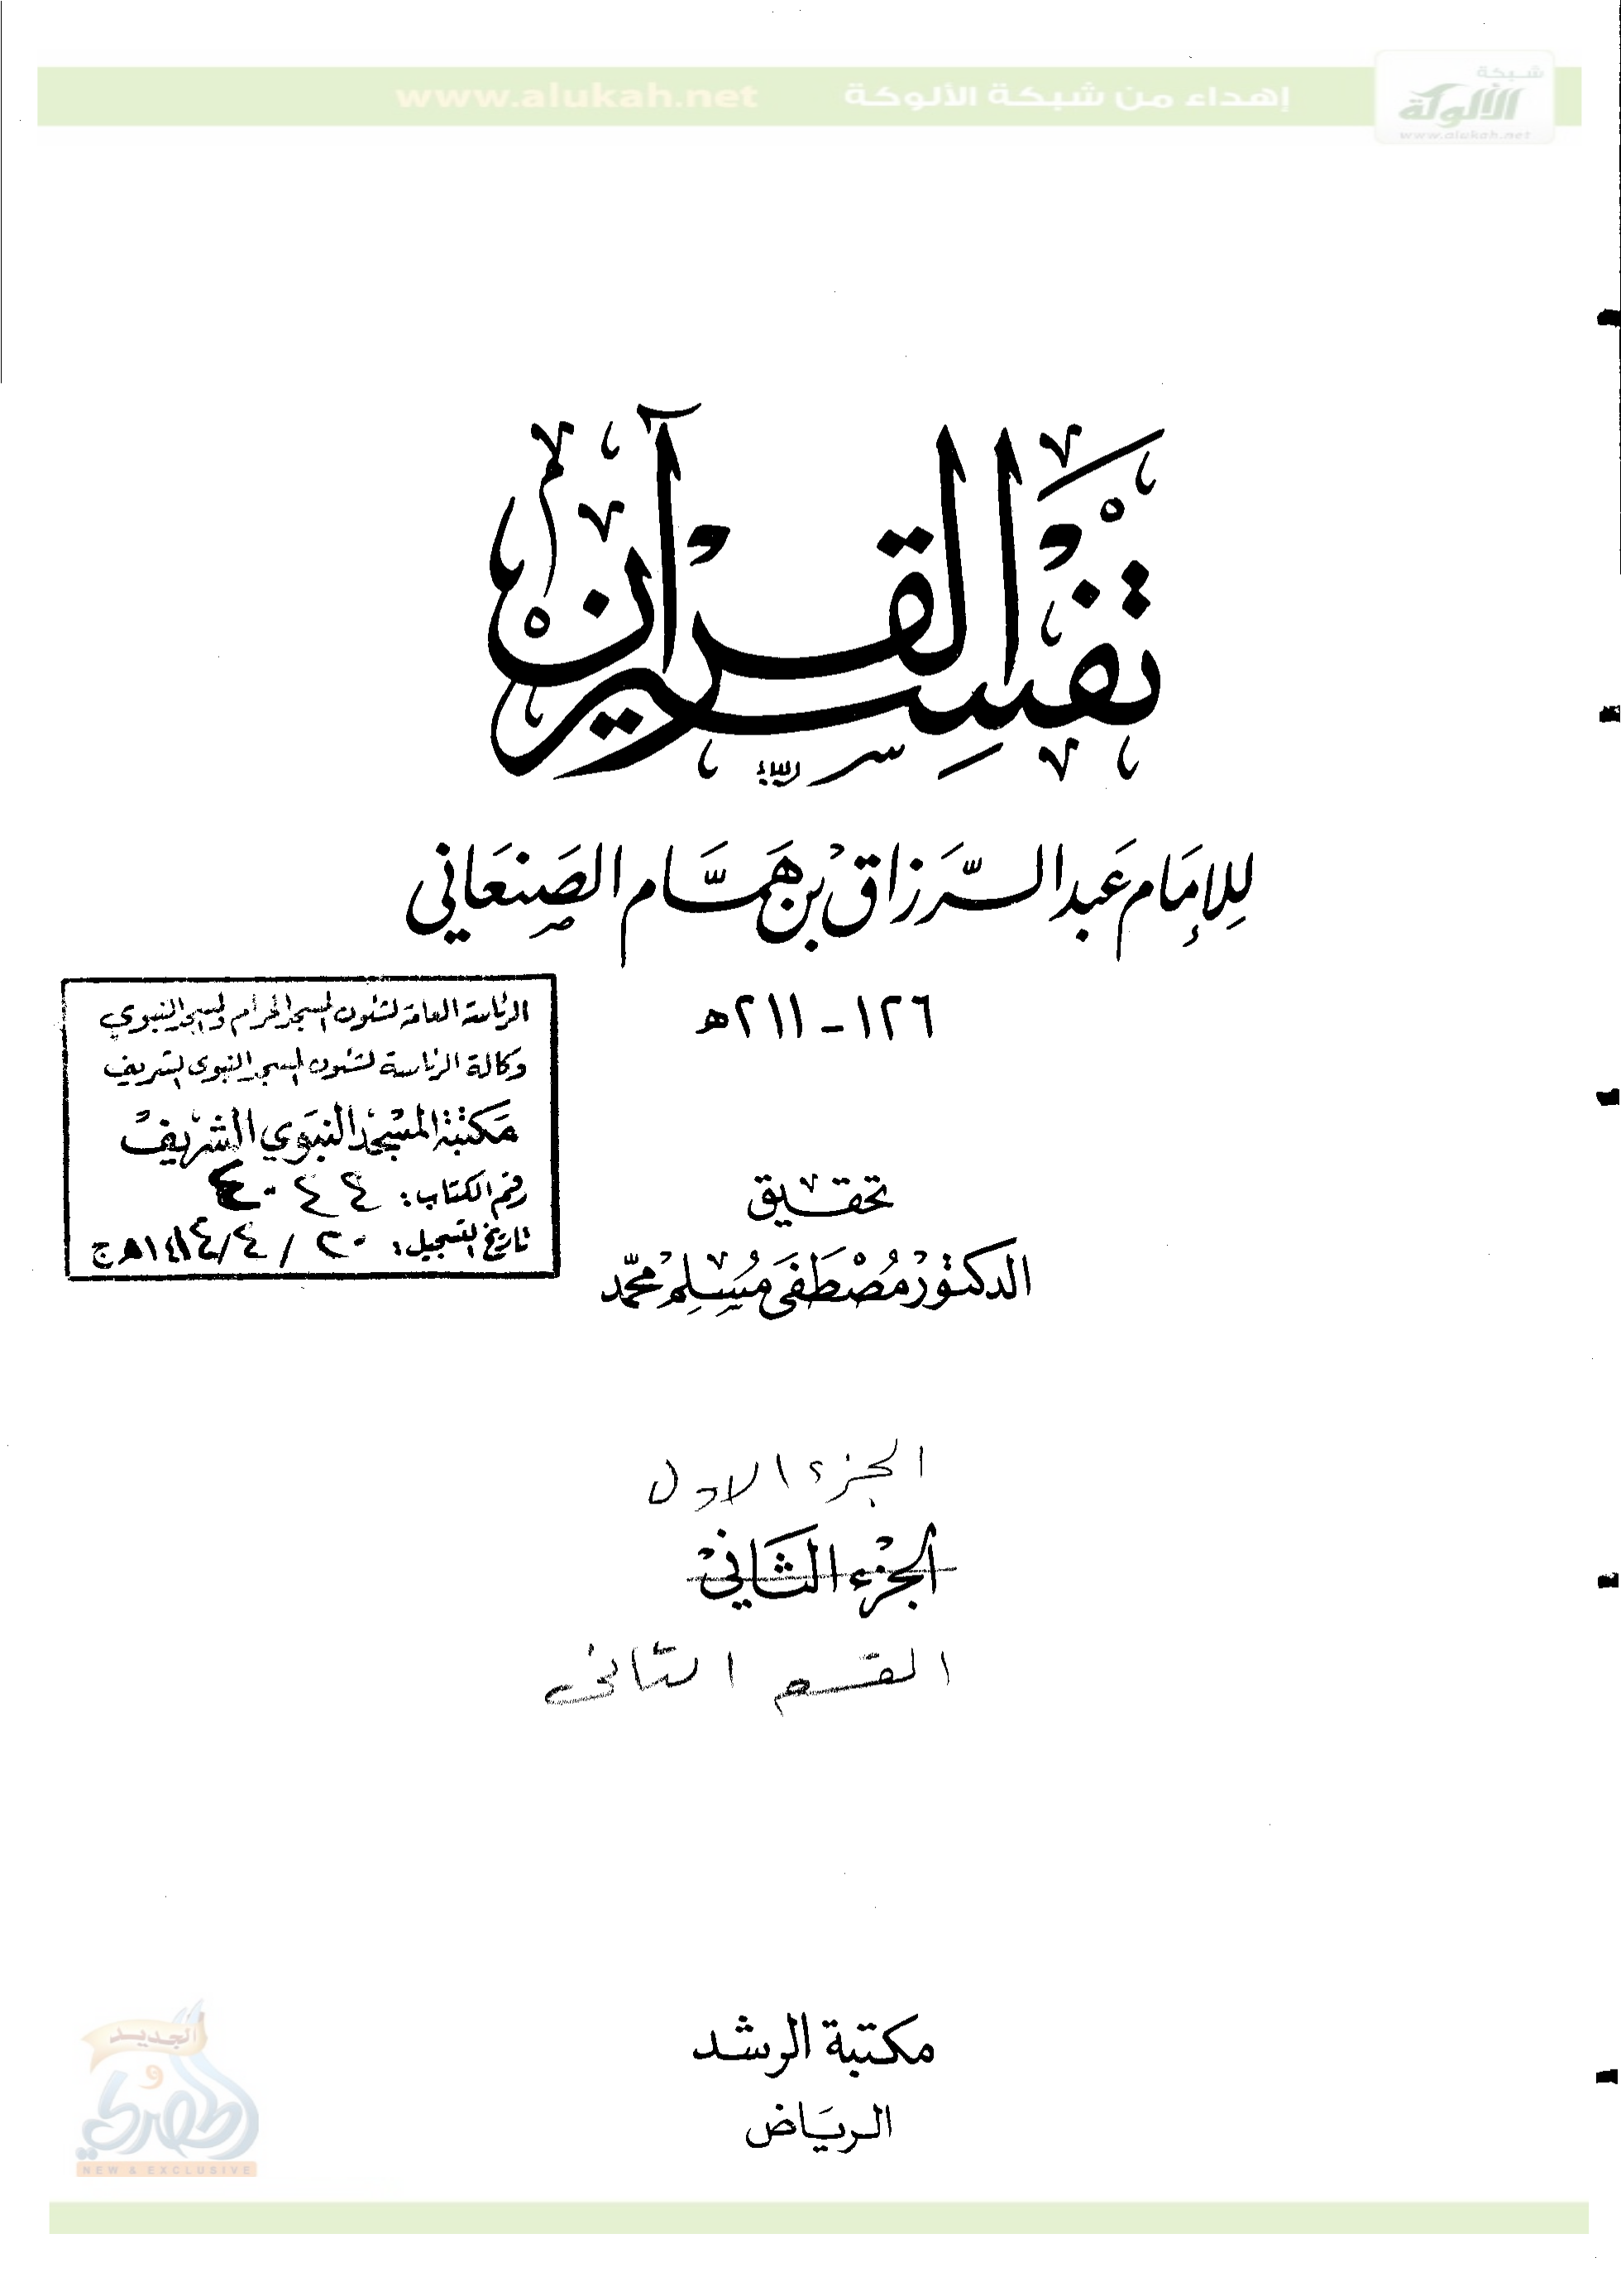 إهداء من شبكة الألوكة www.alukah.net
شبكة
الألوكة
www.alukah.net
تفسير القرآن
للإمام عبد الرزاق بن همام الصنعاني
١٢٦ - ٢١١ هـ
الرئاسة العامة لشئون المسجد الحرام والمسجد النبوي
وكالة الرئاسة لشئون المسجد النبوي الشريف
مكتبة المسجد النبوي الشريف
رقم الكتاب:
تاريخ التسجيل: ٢٠ / ٤ / ١٤١٤ هـ ج
تحقيق
الدكتور مصطفى مسلم محمد
الجزء الاول
الجزء الثاني
القسم الثانى
مكتبة الرشد
الرياض
الجديد
و
الحصري
NEW & EXCLUSIVE